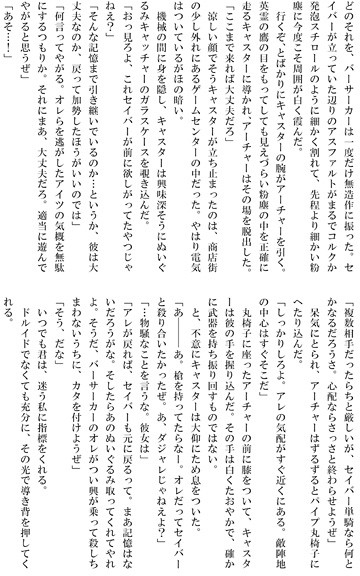 どのそれを、バーサーカーは一度だけ無造作に振った。セ
イバーが立っていた辺りのアスファルトがまるでコルクか
発泡スチロールのように細かく割れて、先程より細かい粉
塵に今度こそ周囲が白く霞んだ。
　行くぞ、とばかりにキャスターの腕がアーチャーを引く。
英霊の鷹の目をもってしても見えづらい粉塵の中を正確に
走るキャスターに導かれ、アーチャーはその場を脱出した。
「ここまで来れば大丈夫だろ」
　涼しい顔でそうキャスターが立ち止まったのは、商店街
の少し外れにあるゲームセンターの中だった。やはり電気
はついているがほの暗い。
　機械の間に身を隠し、キャスターは興味深そうにぬいぐ
るみキャッチャーのガラスケースを覗き込んだ。
「おっ見ろよ、これセイバーが前に欲しがってたやつじゃ
ねえ？」
「そんな記憶まで引き継いでいるのか…というか、彼は大
丈夫なのか、戻って加勢したほうがいいのでは」
「何言ってやがる。オレらを逃がしたアイツの気概を無駄
にするつもりか。それにまあ、大丈夫だろ。適当に遊んで
やがると思うぜ」
「あそ…！」
「複数相手だったらちと厳しいが、セイバー単騎なら何と
かなるだろうさ、心配ならさっさと終わらせようぜ」
　呆気にとられ、アーチャーはずるずるとパイプ丸椅子に
へたり込んだ。
「しっかりしろよ。アレの気配がすぐ近くにある。敵陣地
の中心はすぐそこだ」
　丸椅子に座ったアーチャーの前に膝をついて、キャスタ
ーは彼の手を握り込んだ。その手は白くたおやかで、確か
に武器を持ち振り回すものではない。
　と、不意にキャスターは大仰にため息をついた。
「あ――あ。槍を持ってたらなー。オレだってセイバー
と殺り合いたかったぜ。あ、ダジャレじゃねえよ？」
「…物騒なことを言うな。彼女は」
「アレが戻れば、セイバーも元に戻るって。まあ記憶はな
いだろうがな。そしたらあのぬいぐるみ取ってくれてやれ
よ。そうだ、バーサーカーのオレがつい興が乗って殺しち
まわないうちに、カタを付けようぜ」
「そう、だな」
　いつでも君は、迷う私に指標をくれる。
　ドルイドでなくても充分に、その光で導き背を押してく
れる。